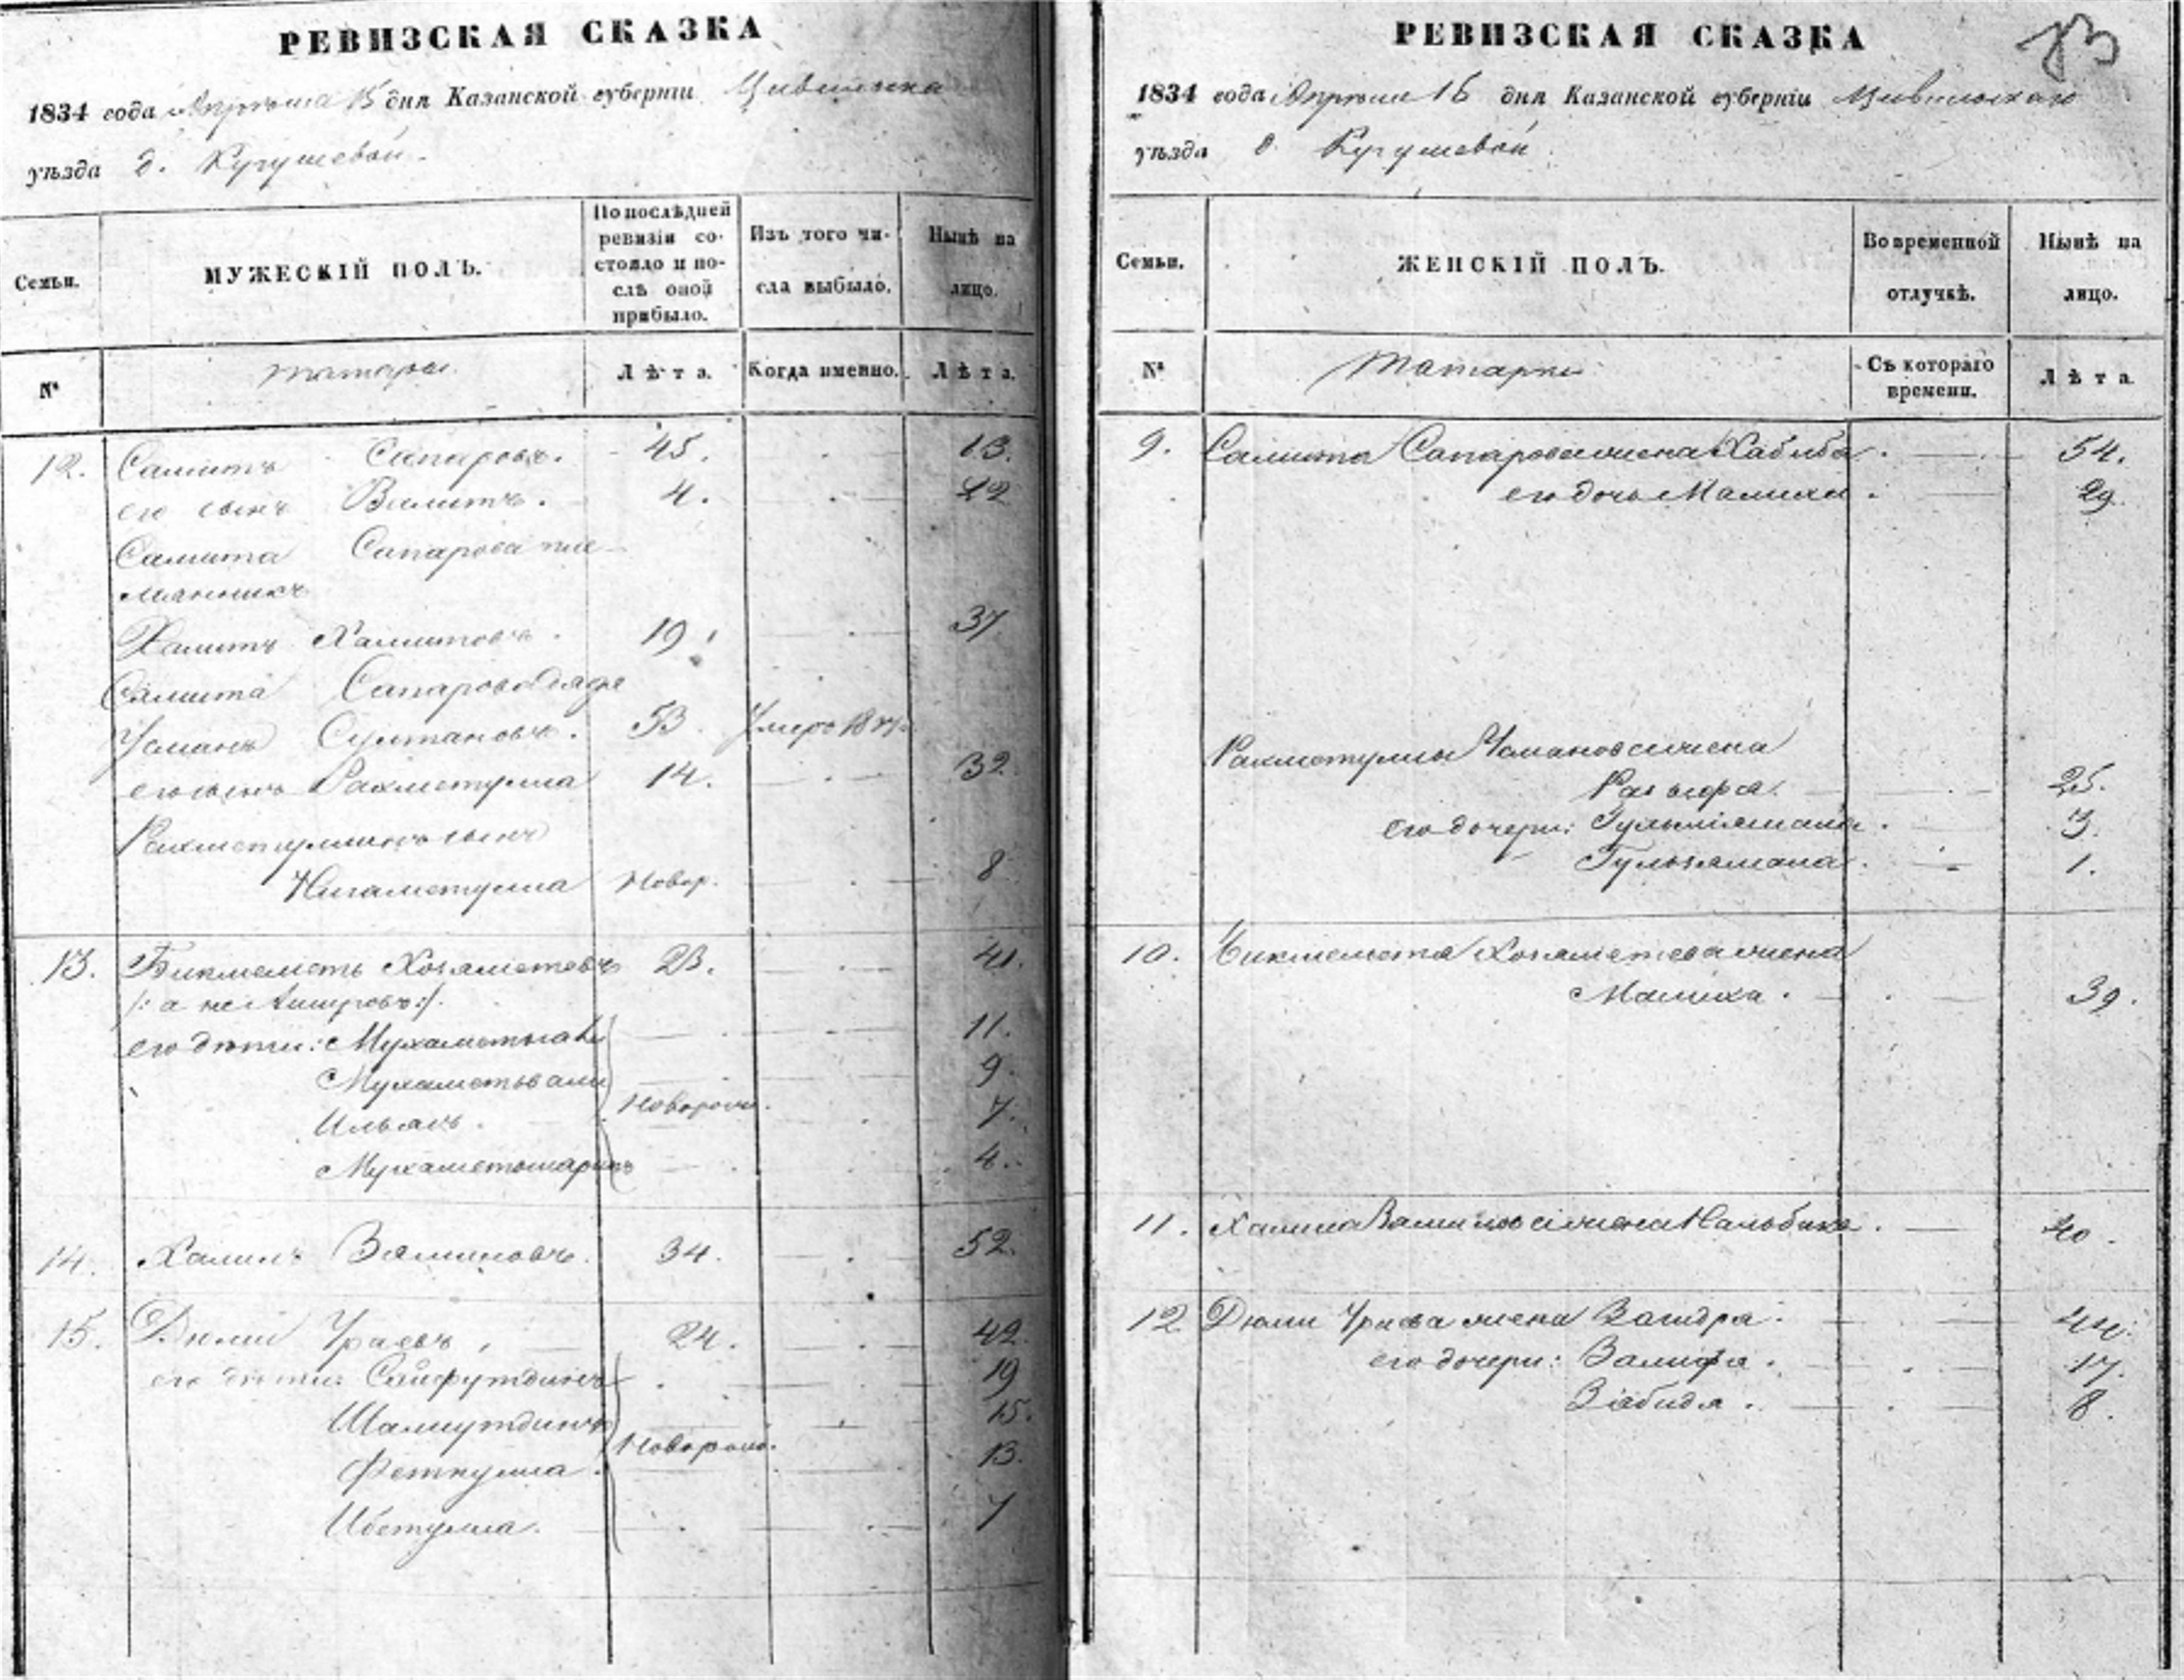 РЕВИЗСКАЯ СКАЗКА
1834 года Апреля 15 дня Казанской губерніи
уѣзда д. Кугушевой.
Семьи.
МУЖЕСКІЙ ПОЛЪ.
По послѣдней
ревизіи со-
стояло и по-
слѣ оной
прибыло.
Изъ того чи-
сла выбыло.
Нынѣ на
лицо.
№
татары
Лѣта.
Когда именно.
Лѣта.
12. Самитъ Сапаровъ. 45.
его сынъ Валитъ. 4.
Самита Сапарова пле-
мянникъ
Халитъ Хамитовъ. 19. 37
Самита Сапарова дядя
Усманъ Султановъ. 53. Умеръ
его сынъ Рахметулла 14. 32
Рахметуллинъ сынъ
Нигаметулла Новор. 8
13. Бикмеметь Хозяметевъ 23. 41.
/: а не Аитровъ :/.
его дѣти: 11.
Мухаметьвали 9.
Ильясъ. Новорож. 7.
Мухаметьшарипъ 4.
14. Халилъ Валиловъ. 34. 52.
15. Дюли Ураевъ 24. 42.
его дѣти: Сайфутдинъ 19
Шамшутдинъ 15.
Новорож.
Феткулла 13.
Ибетулла. 7
РЕВИЗСКАЯ СКАЗКА
1834 года Апреля 15 дня Казанской губерніи Цивильскаго
уѣзда д. Кугушевой
Семьи.
ЖЕНСКІЙ ПОЛЪ.
Во временной
отлучкѣ.
Нынѣ на
лицо.
№
Татарки
Съ котораго
времени.
Лѣта.
9. Самита Сапарова жена Хабиба. 54.
его дочь Малика. 29.
Рахметуллы Усманова жена
25.
его дочери: 3.
Гульзямала. 1.
10. Бикмеметя Хозяметева жена
Малика. 39.
11. Халила Валилова жена 40.
12 Дюли Ураева жена Вагидра. 44.
его дочери: Залифа. 17.
Забида. 8.